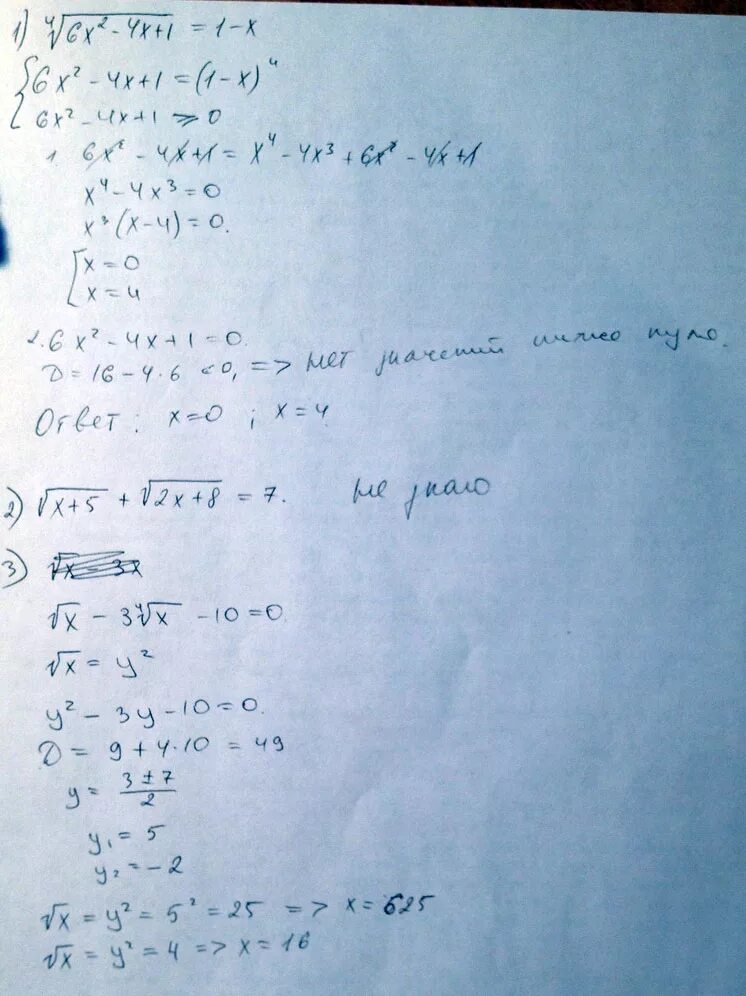 1) ⁴√(6x² - 4x + 1) = 1 - x
{ 6x² - 4x + 1 = (1 - x)⁴
6x² - 4x + 1 ≥ 0
1. 6x² - 4x + 1 = x⁴ - 4x³ + 6x² - 4x + 1
x⁴ - 4x³ = 0
x³(x - 4) = 0.
[ x = 0
x = 4
2. 6x² - 4x + 1 = 0.
D = 16 - 4·6 < 0, => нет значений ниже нуля.
Ответ: x = 0 ; x = 4
2) √(x+5) + √(2x+8) = 7. не знаю
3)
√x - 3⁴√x - 10 = 0.
√x = y²
y² - 3y - 10 = 0.
D = 9 + 4·10 = 49
y = (3 ± 7)/2
y₁ = 5
y₂ = -2
√x = y² = 5² = 25 => x = 625
√x = y² = 4 => x = 16